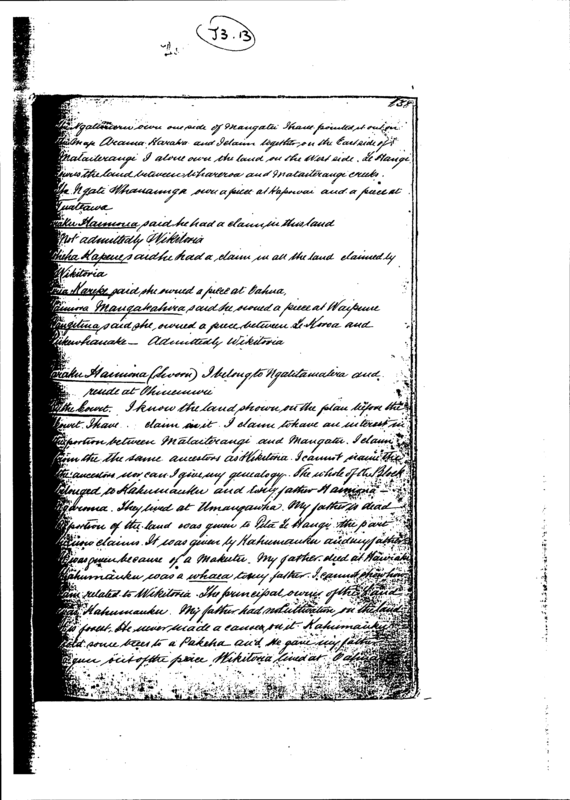 J3.B
134
Ngatimoru own one side of Mangatu I have pointed it out on
map Arama Karaka and I claim together on the East side of
Mataiterangi I alone own the land on the West side. Te Hangi
owns the land between Whareroa and Mataiterangi creeks.
The Ngati Whanaunga own a piece at Hapowai and a piece at
Haimona said he had a claim in this land
Not admitted by Wikitoria
Kapene said he had a claim in all the land claimed by
Wikitoria
Kareke said she owned a piece at Oahua.
Mangakahiwa said she owned a piece at Waipuna
said she owned a piece between Te Koroa and
Admitted by Wikitoria
Haimona (Sworn) I belong to Ngatitamatera and
reside at Ohinemuri
the Court. I know the land shown on the plan before the
Court. I have claim in it. I claim to have an interest in
portion between Mataiterangi and Mangatu. I claim
from the same ancestors as Wikitoria. I cannot name the
ancestors nor can I give my genealogy. The whole of the Block
belonged to Kahumauku and to my father Haimona
They lived at Umangawha. My father is dead
portion of the land was given to Pita Te Hangi the part
now claims. It was given by Kahumauku and my father
was given because of a Makutu. My father died at
Kahumauku was a whaea to my father. I cannot show how
am related to Wikitoria. The principal owner of the land
was Kahumauku. My father had no cultivation on the land
is forest. He never made a canoe on it Kahumauku
sold some trees to a Pakeha and he gave my father
a gun out of the price Wikitoria lived at